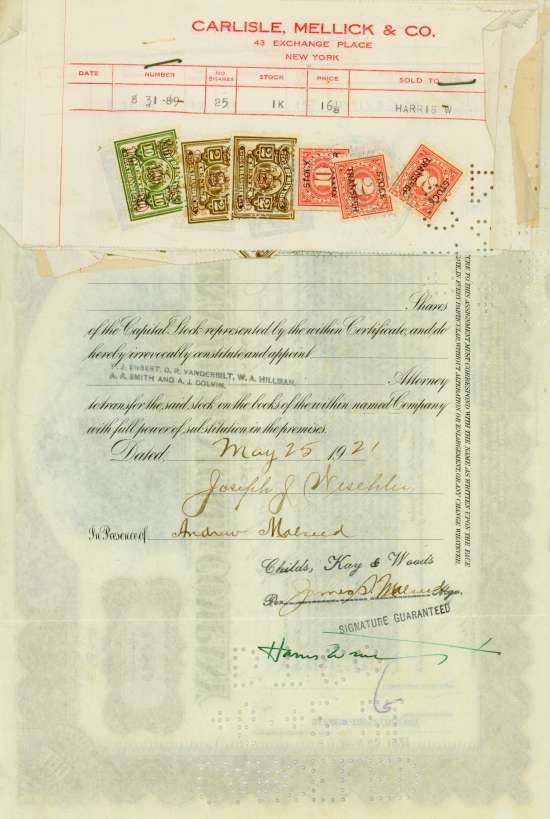 CARLISLE, MELLICK & CO.
43 EXCHANGE PLACE
NEW YORK
DATE NUMBER NO. SHARES STOCK PRICE SOLD TO
8 31-89 25 1K 16 1/8 HARRIS W
10 2 2 10 2 2
STOCK TRANSFER
Shares
of the Capital Stock represented by the within Certificate, and do
hereby irrevocably constitute and appoint
D. R. VANDERBILT, W. A. HILLMAN,
A. R. SMITH AND A. J. COLVIN,
Attorney
to transfer the said stock on the books of the within named Company
with full power of substitution in the premises.
Dated May 25 1921
Joseph J
In Presence of Andrew
Childs, Kay & Woods
Per James
SIGNATURE GUARANTEED
THE TO THIS ASSIGNMENT MUST CORRESPOND WITH THE NAME AS WRITTEN UPON THE FACE
IN EVERY PARTICULAR, WITHOUT ALTERATION OR ENLARGEMENT, OR ANY CHANGE WHATEVER.